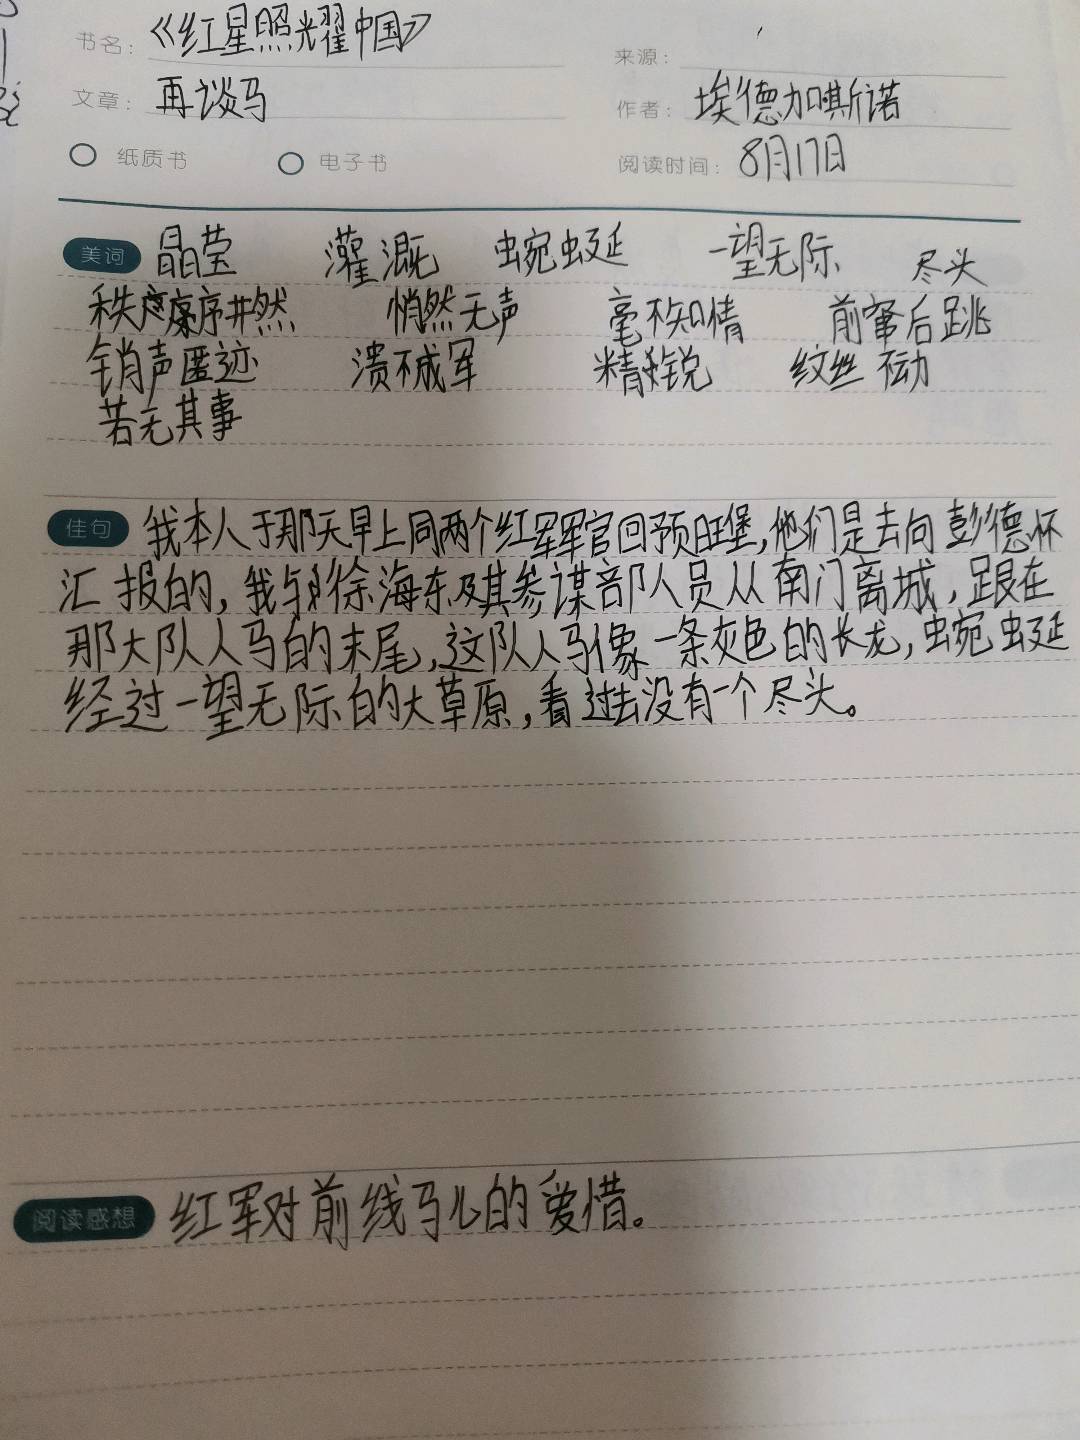 书名：《红星照耀中国》
来源：
文章：再谈马
作者：埃德加·斯诺
纸质书 电子书
阅读时间：8月17日
美词 晶莹 灌溉 蜿蜒 一望无际 尽头
秩序井然 悄然无声 毫不知情 前窜后跳
销声匿迹 溃不成军 精锐 纹丝不动
若无其事
佳句 我本人于那天早上同两个红军军官回预旺堡，他们是去向彭德怀
汇报的，我与徐海东及其参谋部人员从南门离城，跟在
那大队人马的末尾，这队人马像一条灰色的长龙，蜿蜒
经过一望无际的大草原，看过去没有一个尽头。
阅读感想 红军对前线马儿的爱惜。